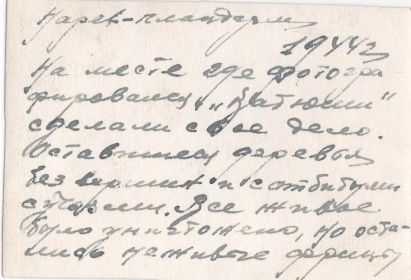 Нарев-плацдарм
1944г
На месте где фотогра
фировались „Катюши"
сделали свое дело.
Оставшиеся деревья
без вершин и с отбитыми
сучьями. Все живое
было уничтожено, но оста-
лись не живые фрицы